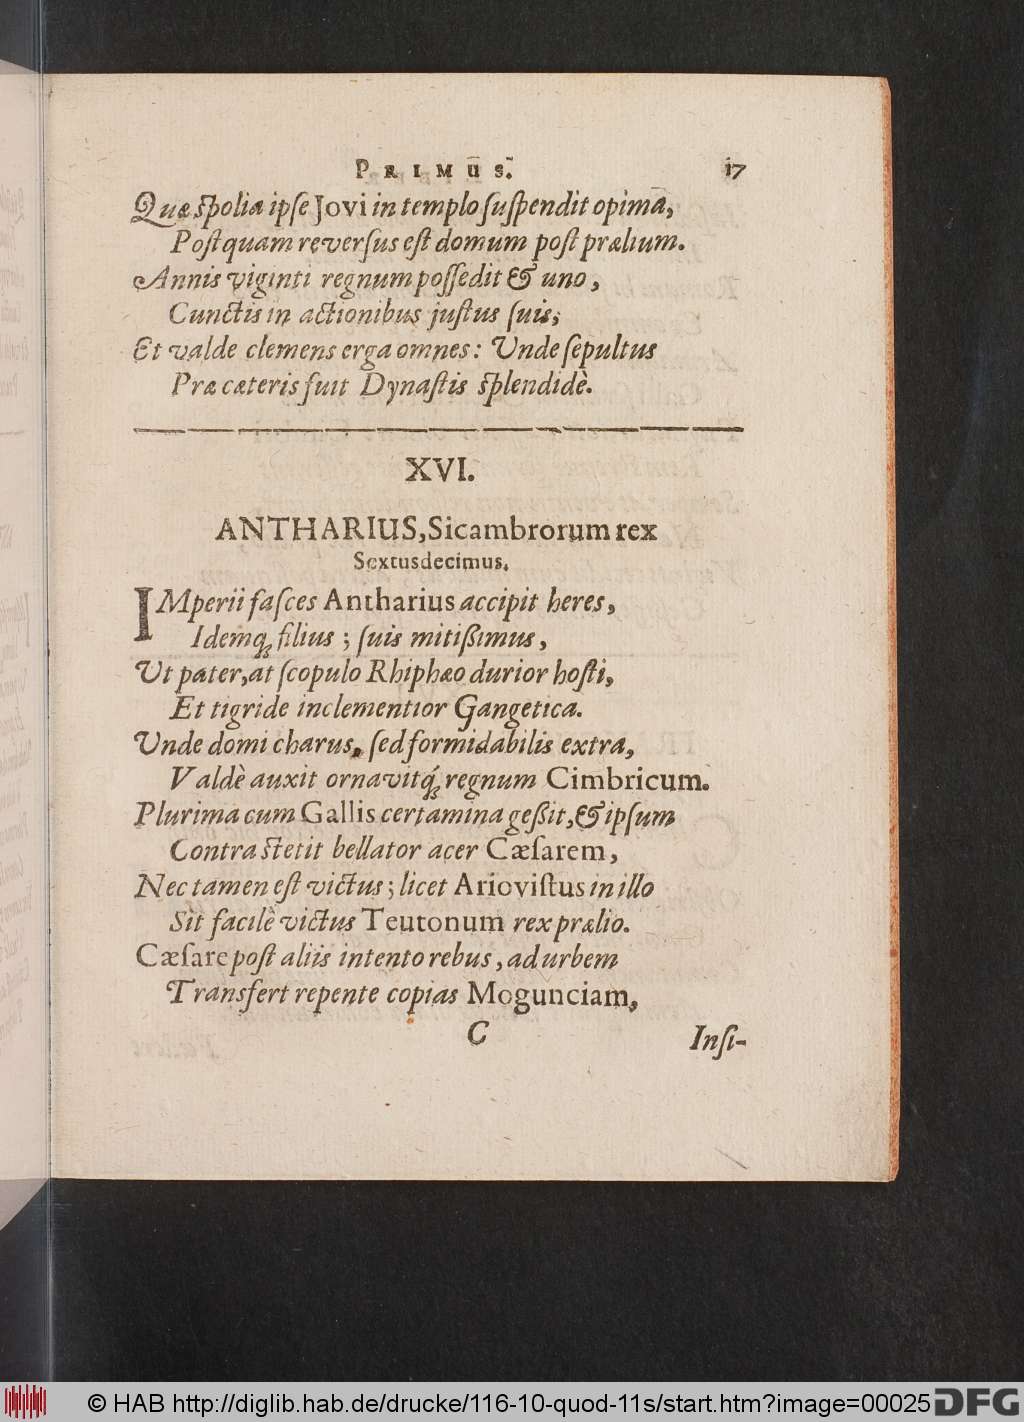 PRIMUS. 17
Quæ spolia ipse Jovi in templo suspendit opima,
Postquam reversus est domum post prælium.
Annis viginti regnum possedit & uno,
Cunctis in actionibus justus suis;
Et valde clemens erga omnes: Unde sepultus
Præ cæteris fuit Dynastis splendidè.
XVI.
ANTHARIUS, Sicambrorum rex
Sextusdecimus.
IMperii fasces Antharius accipit heres,
Idemq́; filius; suis mitißimus,
Ut pater, at scopulo Rhiphæo durior hosti,
Et tigride inclementior Gangetica.
Unde domi charus, sed formidabilis extra,
Valdè auxit ornavitq́; regnum Cimbricum.
Plurima cum Gallis certamina geßit, & ipsum
Contra stetit bellator acer Cæsarem,
Nec tamen est victus; licet Ariovistus in illo
Sit facilè victus Teutonum rex prælio.
Cæsare post aliis intento rebus, ad urbem
Transfert repente copias Mogunciam,
C Insi-
© HAB http://diglib.hab.de/drucke/116-10-quod-11s/start.htm?image=00025 DFG